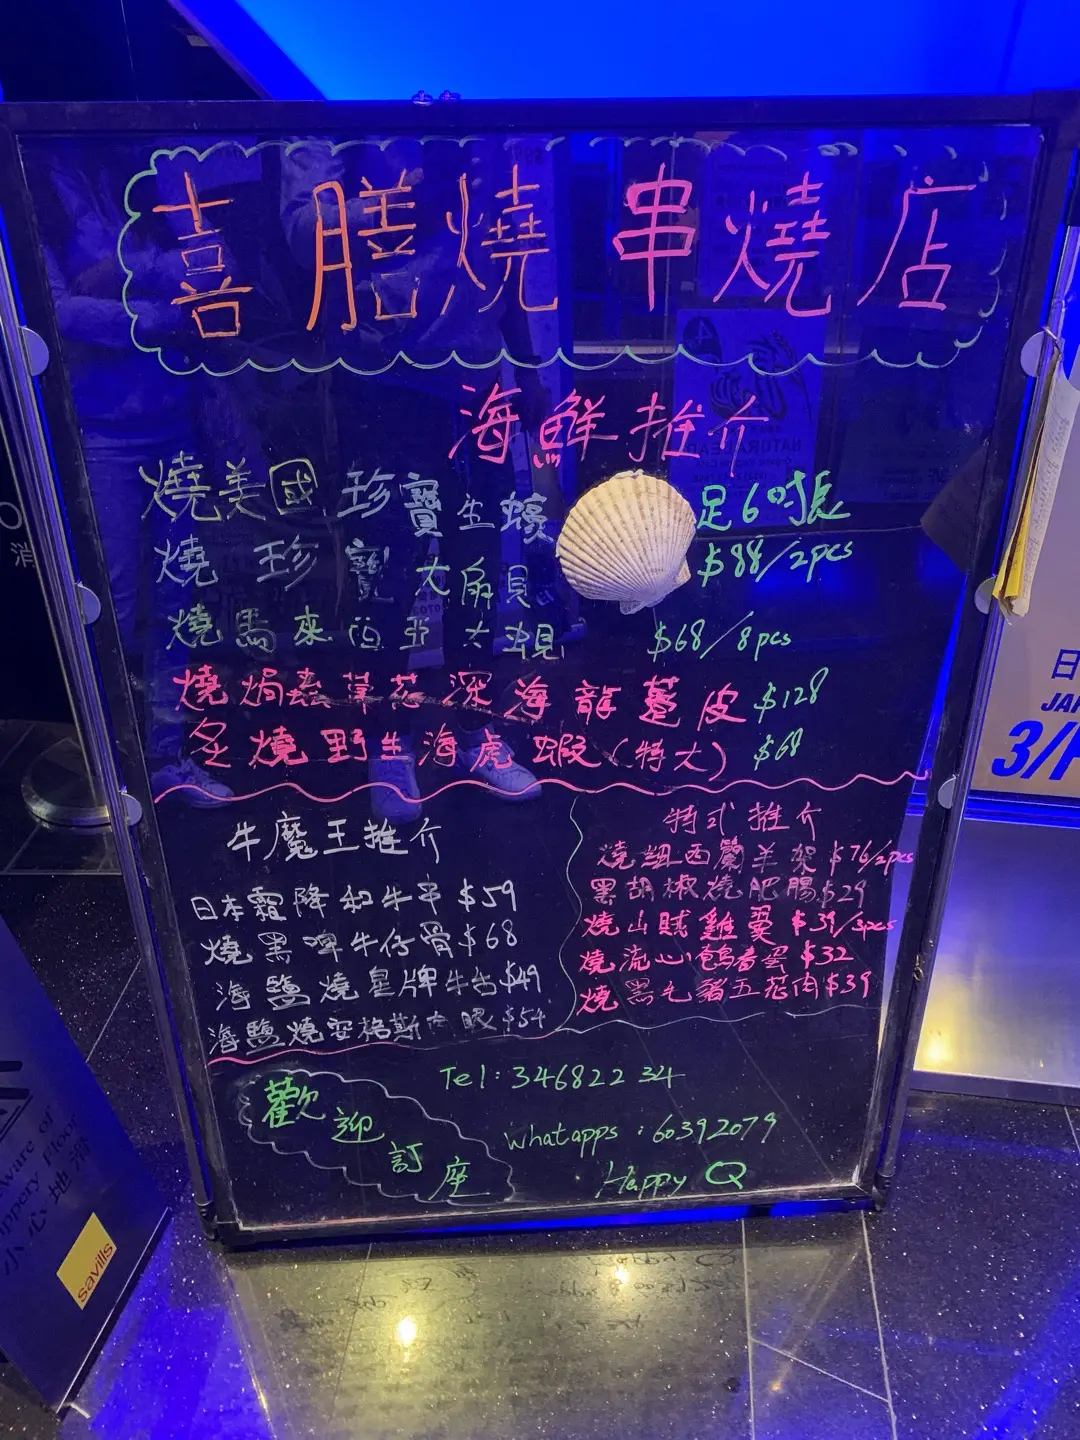 喜膳燒 串燒店
海鮮推介
燒美國珍寶生蠔 足6吋長
燒珍寶大扇貝 $88/2pcs
燒馬來西亞大蜆 $68/8pcs
燒焗蟲草花深海龍躉皮 $128
炙燒野生海虎蝦(特大) $68
牛魔王推介
日本霜降和牛串 $59
燒黑啤牛仔骨 $68
海鹽燒皇牌牛舌 $49
海鹽燒安格斯肉眼 $54
特式推介
燒紐西蘭羊架 $76/2pcs
黑胡椒燒肥腸 $29
燒山賊雞翼 $39/3pcs
燒流心鵪春蛋 $32
燒黑毛豬五花肉 $39
歡迎訂座
Tel: 34682234
whatapps : 60392079
Happy Q
消
日
3/F
savills
小心地滑